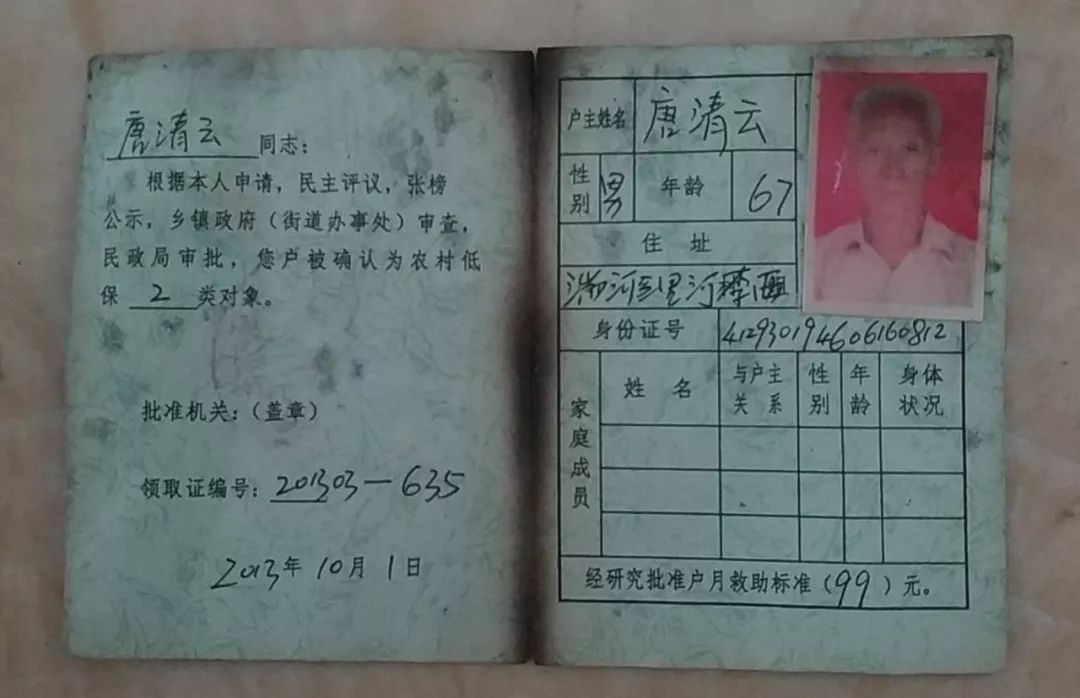 唐清云 同志：
根据本人申请，民主评议，张榜
公示，乡镇政府（街道办事处）审查，
民政局审批，您户被确认为农村低
保 2 类对象。
批准机关：（盖章）
领取证编号：201303—635
2013年10月1日
户主姓名 唐清云
性别 男 年龄 67
住址
河 里河
身份证号 412930194606160812
家庭成员 姓名 与户主关系 性别 年龄 身体状况
经研究批准户月救助标准（99）元。